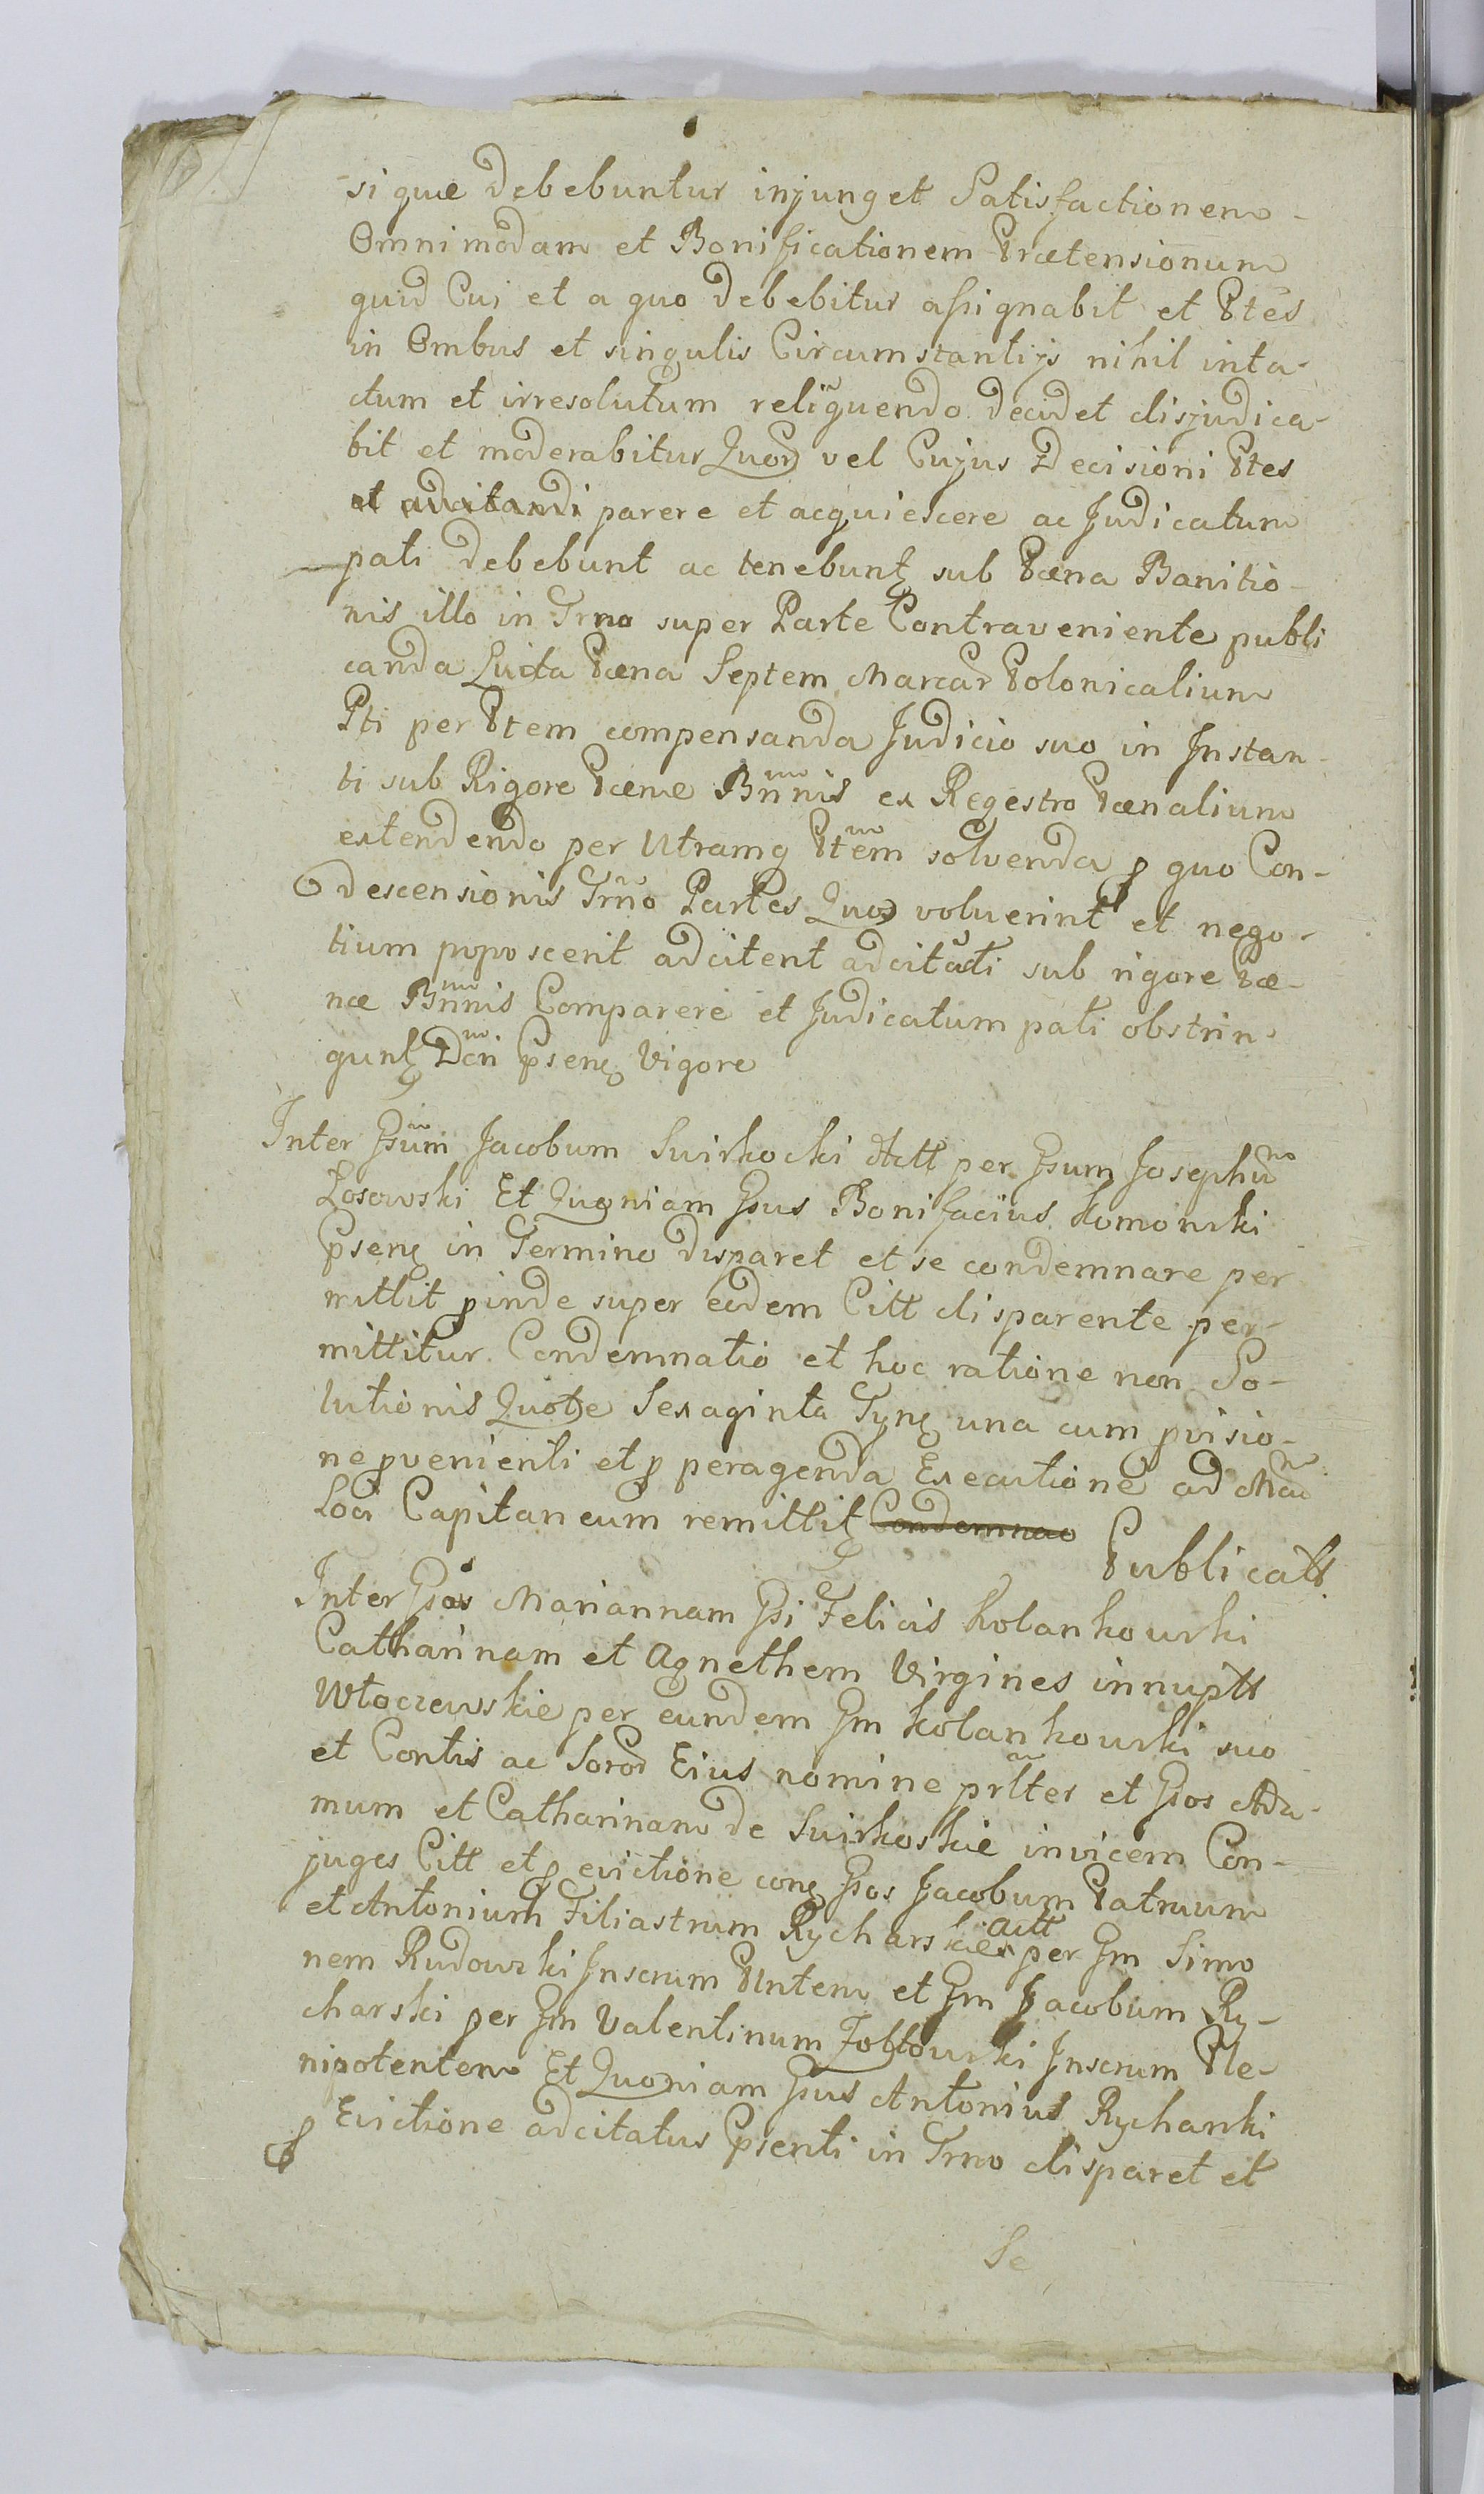 si quæ debebuntur injunget Satisfactionem
Omnimodam et Bonificationem Prætensionum
quid Cui et a quo debebitur assignabit et Ptes
in Ombus et singulis Circumstantijs nihil inta-
ctum et irresolutum reliquendo decidet disjudica-
bit et moderabitur Quor vel Cujus Decisioni Ptes
et adcitandi parere et acquiescere ac Judicatum
pati debebunt ac tenebunt sub Pæna Banitio-
nis illo in Trno super Parte Contraveniente publi
canda Luita Pæna Septem Marcar Polonicalium
Pti per Ptem compensanda Judicio suo in Instan-
ti sub Rigore Pænæ Bnnis ex Regestro Pænalium
extendendo per Utramq Ptem solvenda p quo Con-
descensionis Trno Partes Quos voluerint et nego-
tium poposcerit adcitent adcitati sub rigore Pæ-
næ Bnnis Comparere et Judicatum pati obstrin-
gunt Dcri Psen Vigore
Inter Gsum Jacobum Swirkocki Actt per Gsum Josephu
Losowski Et Quoniam Gsus Bonifacius Komorski
Psen in Termino disparet et se condemnare per
mittit pinde super eodem Citt disparente per-
mittitur Condemnatio et hoc ratione non So-
lutionis Quotæ Sexaginta Tyn una cum pvisio-
ne pvenienti et p peragenda Executione ad Mcu
Loci Capitaneum remittit Condemnao
Publicatt
Inter Gsos Mariannam Gsi Felicis Kolankowski
Catharinam et Agnethem Virgines innuptt
Włoczewskie per eundem Gm Kolankowski suo
et Contis ac Soror Eius nomine prltes et Gsos Ada-
mum et Catharinam de Swirkoskie invicem Con-
juges Citt et p evictione con Gsos Jacobum Patruum
et Antonium Filiastrum Rycharskie Actt per Gm Simo
nem Rudowski Inscrum Plntem et Gm Jacobum Ry-
charski per Gm Valentinum Zołtowski Inscrum Ple-
nipotentem Et Quoniam Gsus Antonius Rycharski
p Evictione adcitatus Psenti in Trno disparet et
Se